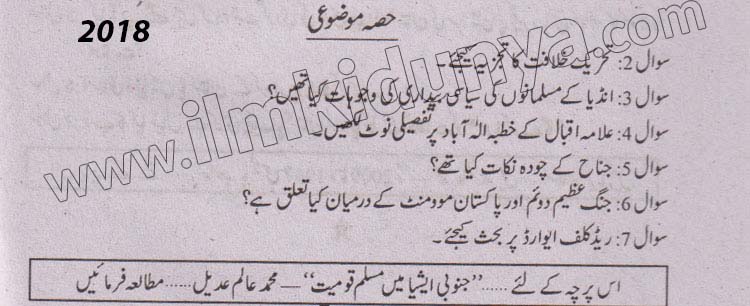 2018
حصہ موضوعی
سوال 2: تحریک خلافت کا تجزیہ کیجئے۔
سوال 3: انڈیا کے مسلمانوں کی سیاسی بیداری کی وجوہات کیا تھیں؟
سوال 4: علامہ اقبال کے خطبہ الٰہ آباد پر تفصیلی نوٹ لکھیں۔
سوال 5: جناح کے چودہ نکات کیا تھے؟
سوال 6: جنگ عظیم دوئم اور پاکستان موومنٹ کے درمیان کیا تعلق ہے؟
سوال 7: ریڈ کلف ایوارڈ پر بحث کیجئے۔
اس پرچہ کے لئے ......‘‘جنوبی ایشیا میں مسلم قومیت’’ — محمد عالم عدیل ...... مطالعہ فرمائیں
www.ilmkidunya.com